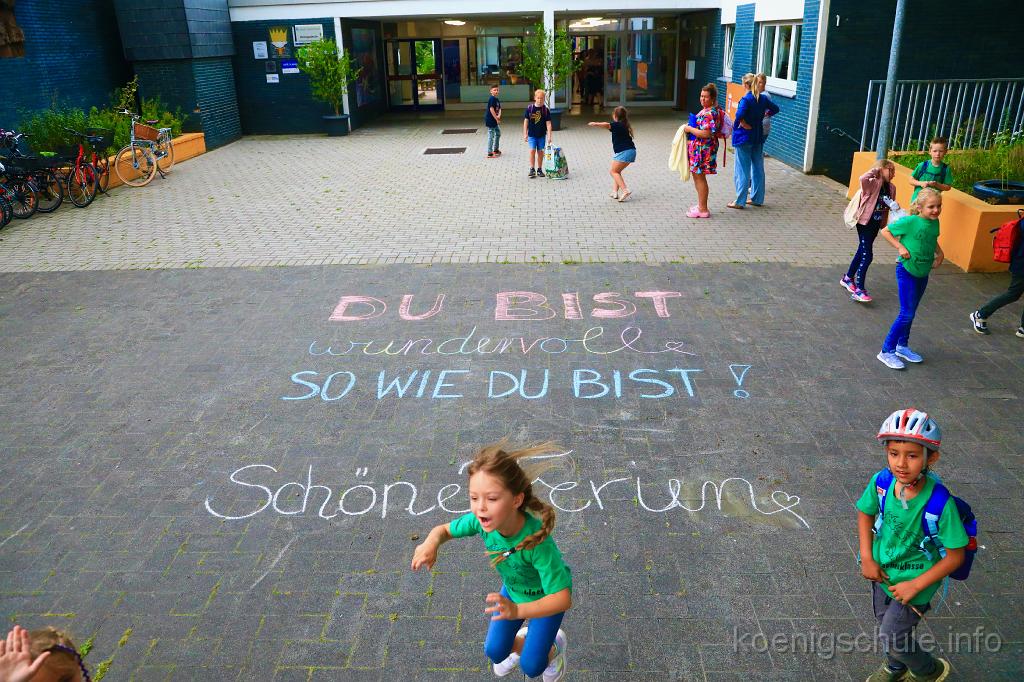 DU BIST
wundervoll
SO WIE DU BIST!
Schöne Ferien
koenigschule.info